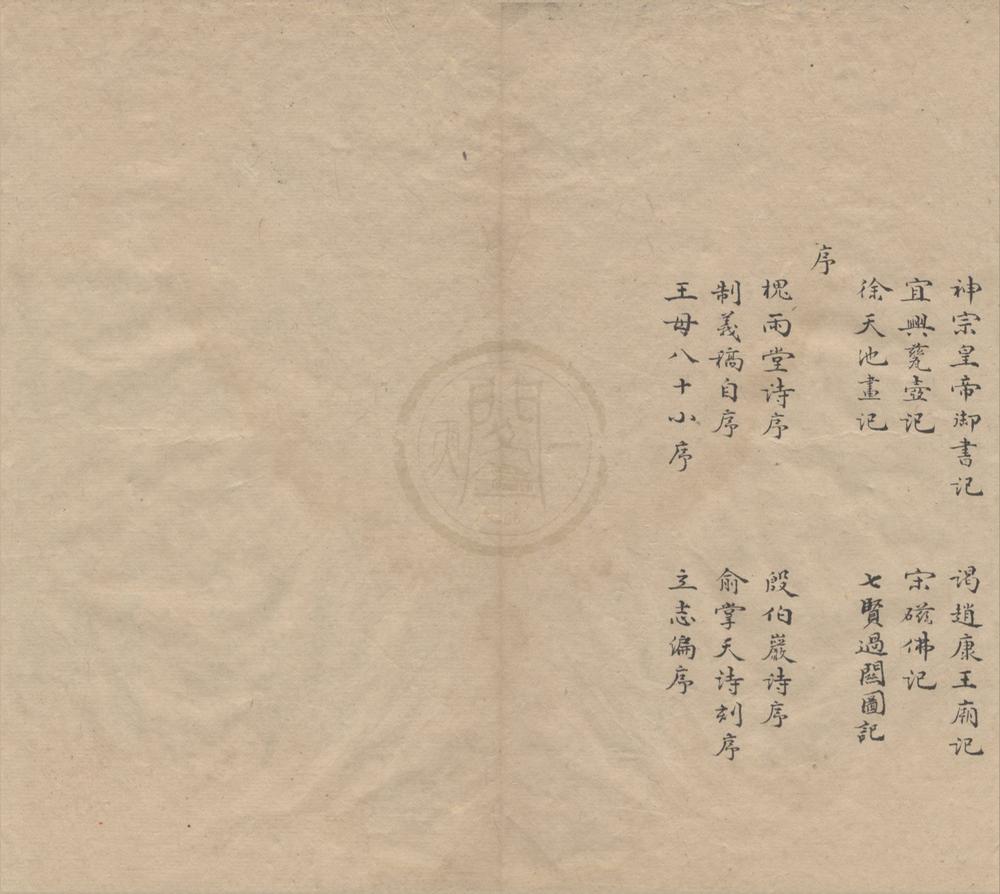 神宗皇帝御書记 谒趙康王廟记
宜興甆壺记 宋磁佛记
徐天池畫记 七賢過関圖記
序
槐雨堂诗序 殷伯巖诗序
制義稿自序 俞掌天诗刻序
王母八十小序 立志编序